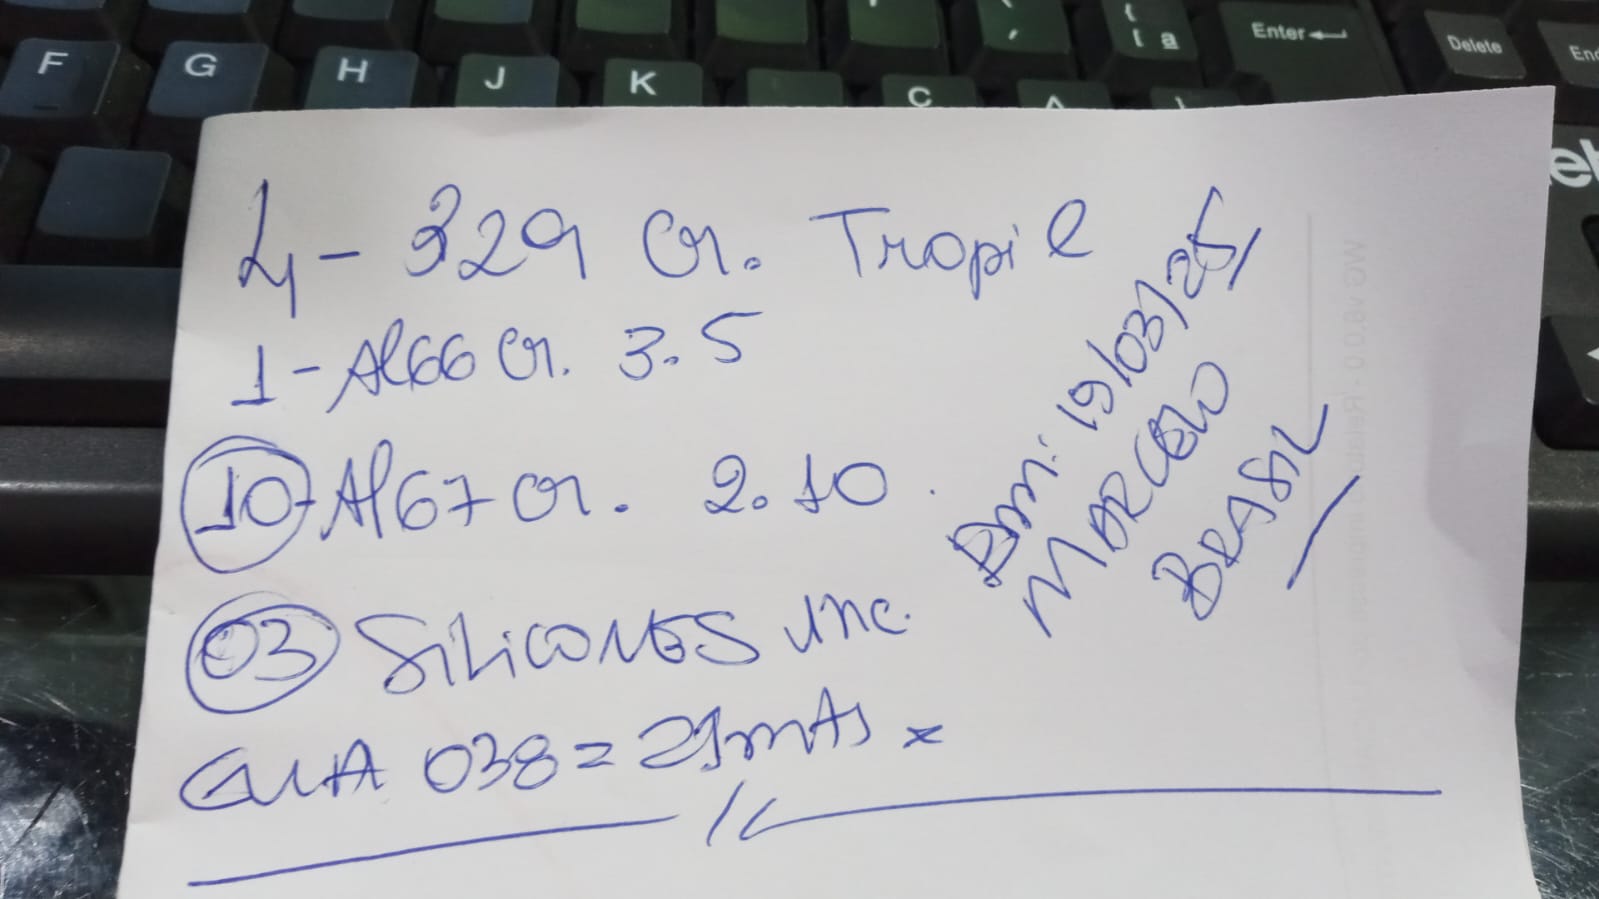 F G H J K Ç Enter Delete End
4 - 329 Cr. Tropil
1 - Al66 Cr. 3.5
10 - Al67 Cr. 2.10
03 SILICONES INC.
GUA 038 = 21 mts x
19/03/25
MARCELO
BRASIL